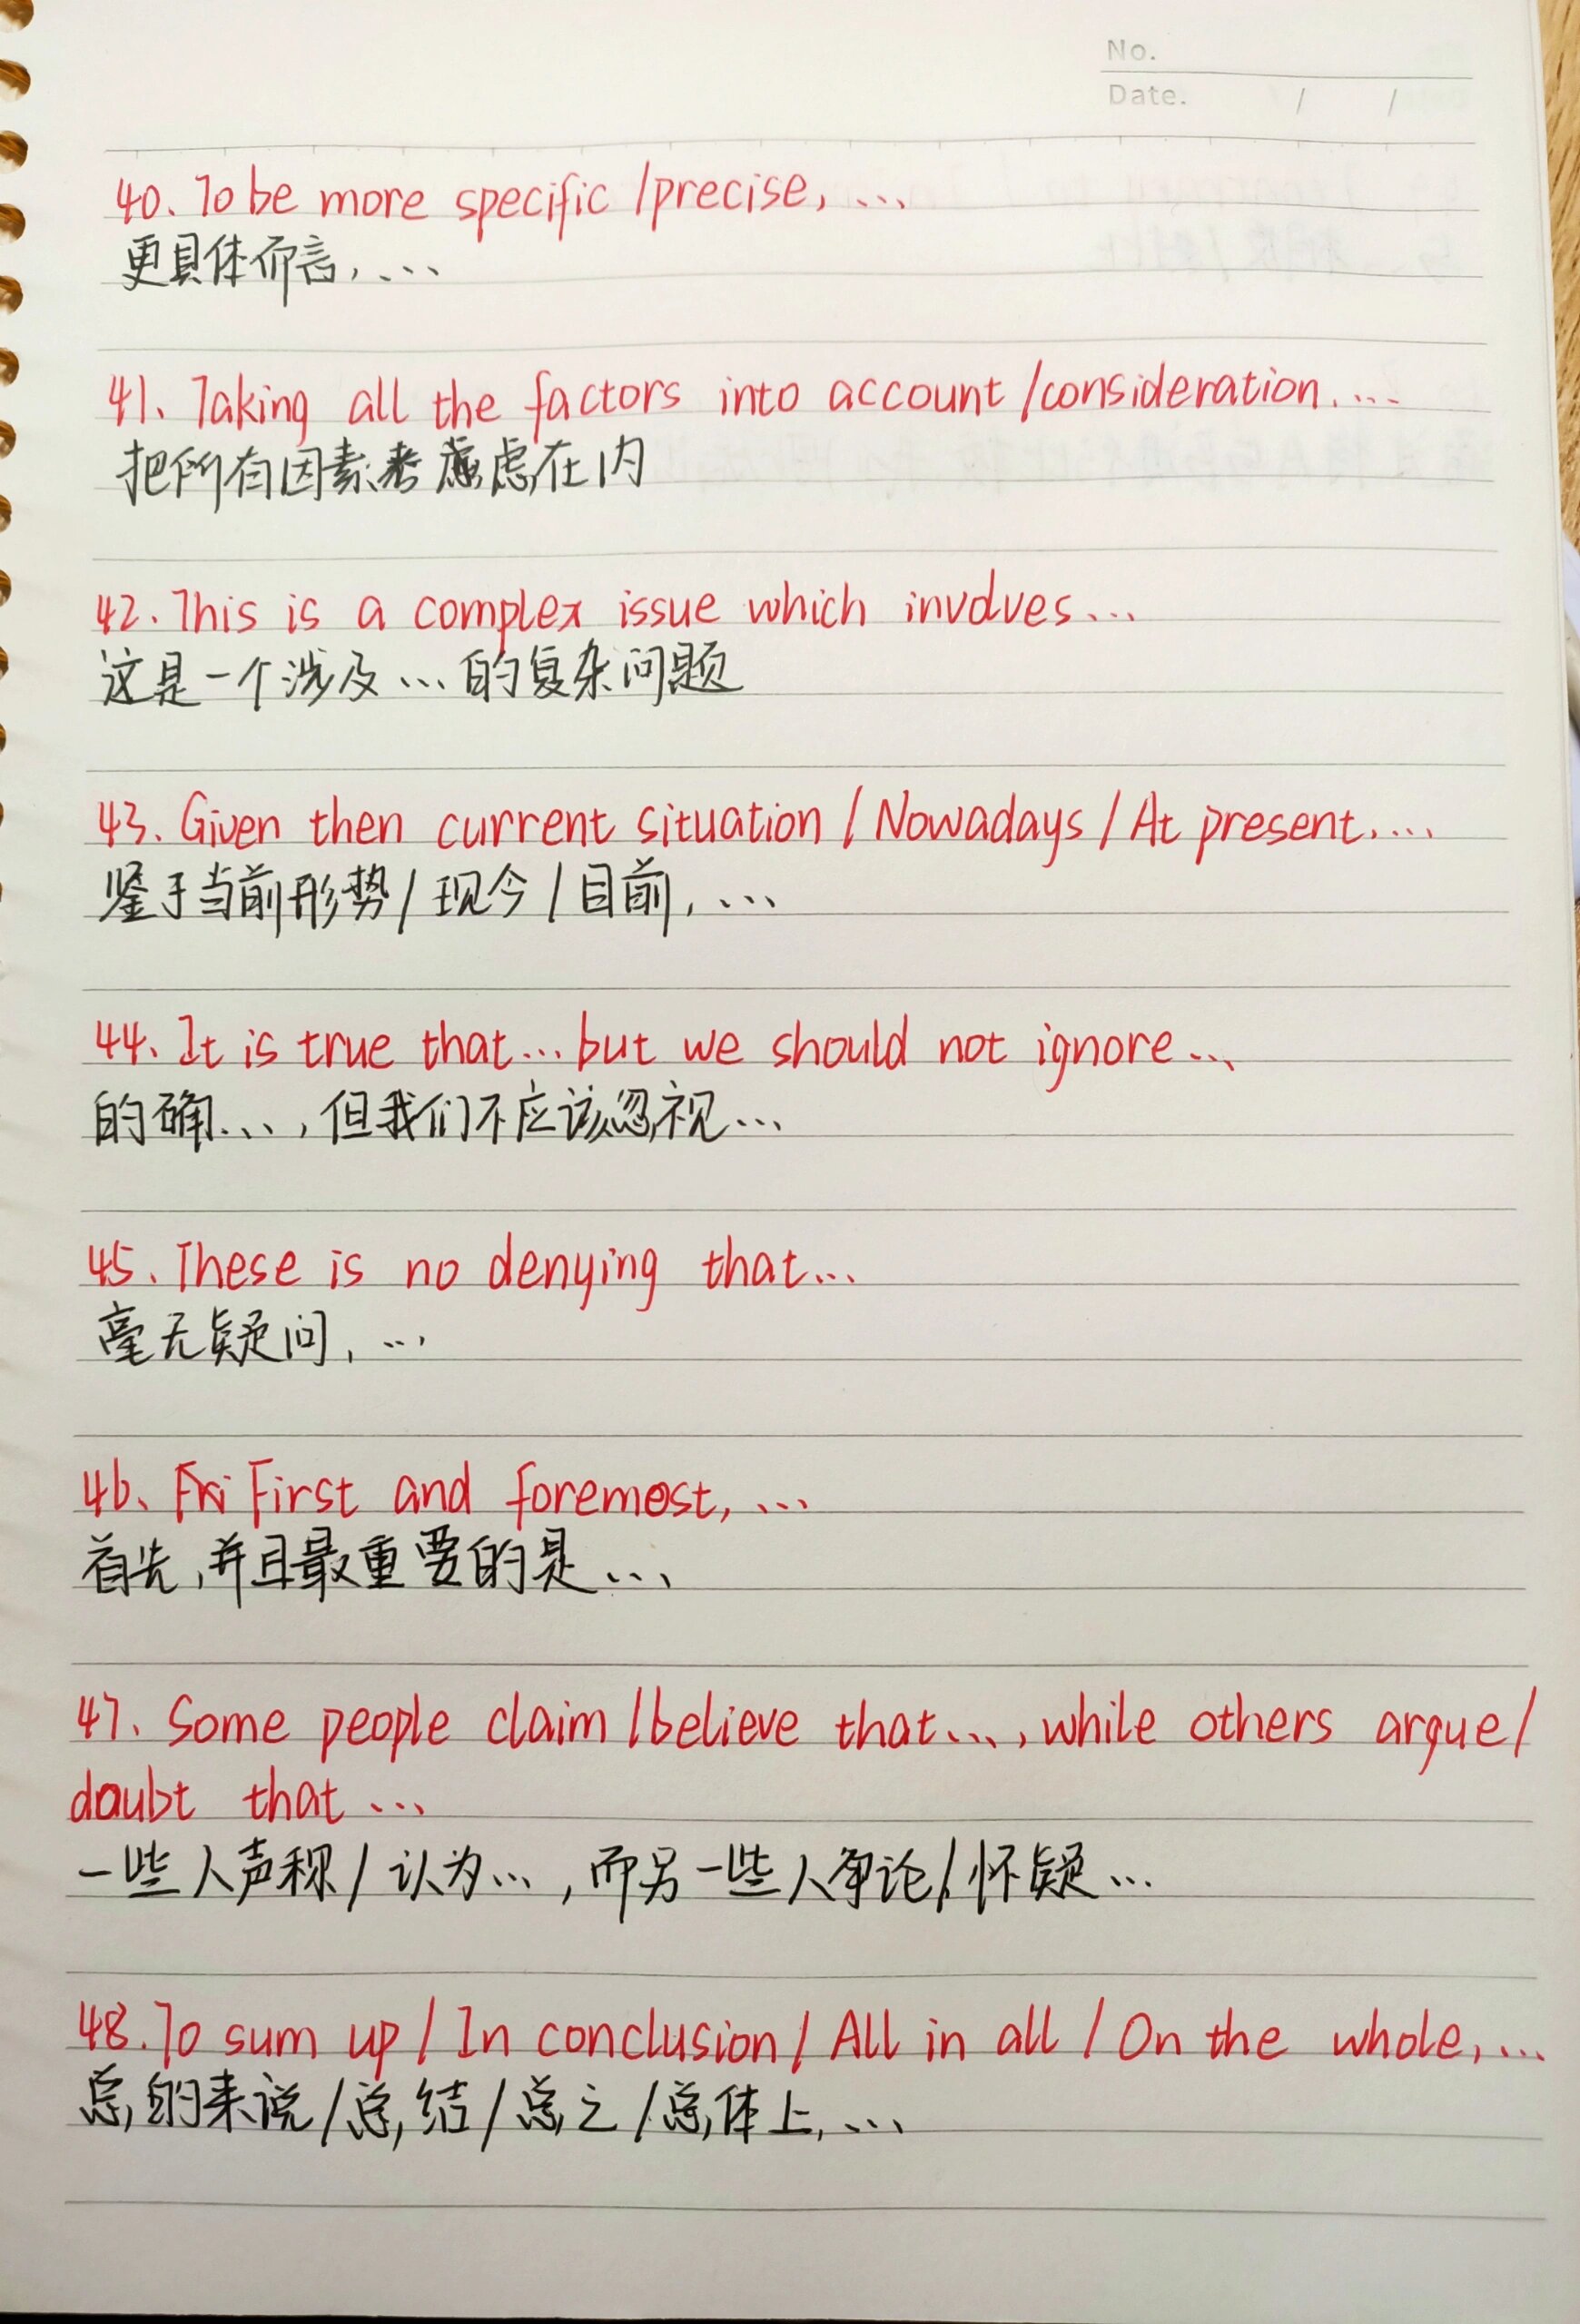 No.
Date. / /
40. To be more specific /precise, ...
更具体而言, ...
41. Taking all the factors into account /consideration. ...
把所有因素考虑在内
42. This is a complex issue which involves...
这是一个涉及...的复杂问题
43. Given then current situation / Nowadays / At present. ...
鉴于当前形势 / 现今 / 目前, ...
44. It is true that... but we should not ignore...
的确..., 但我们不应该忽视...
45. These is no denying that...
毫无疑问, ...
46. First and foremost, ...
首先, 并且最重要的是...
47. Some people claim /believe that..., while others argue /
doubt that ...
一些人声称 / 认为..., 而另一些人争论 / 怀疑...
48. To sum up / In conclusion / All in all / On the whole, ...
总的来说 / 总结 / 总之 / 总体上, ...